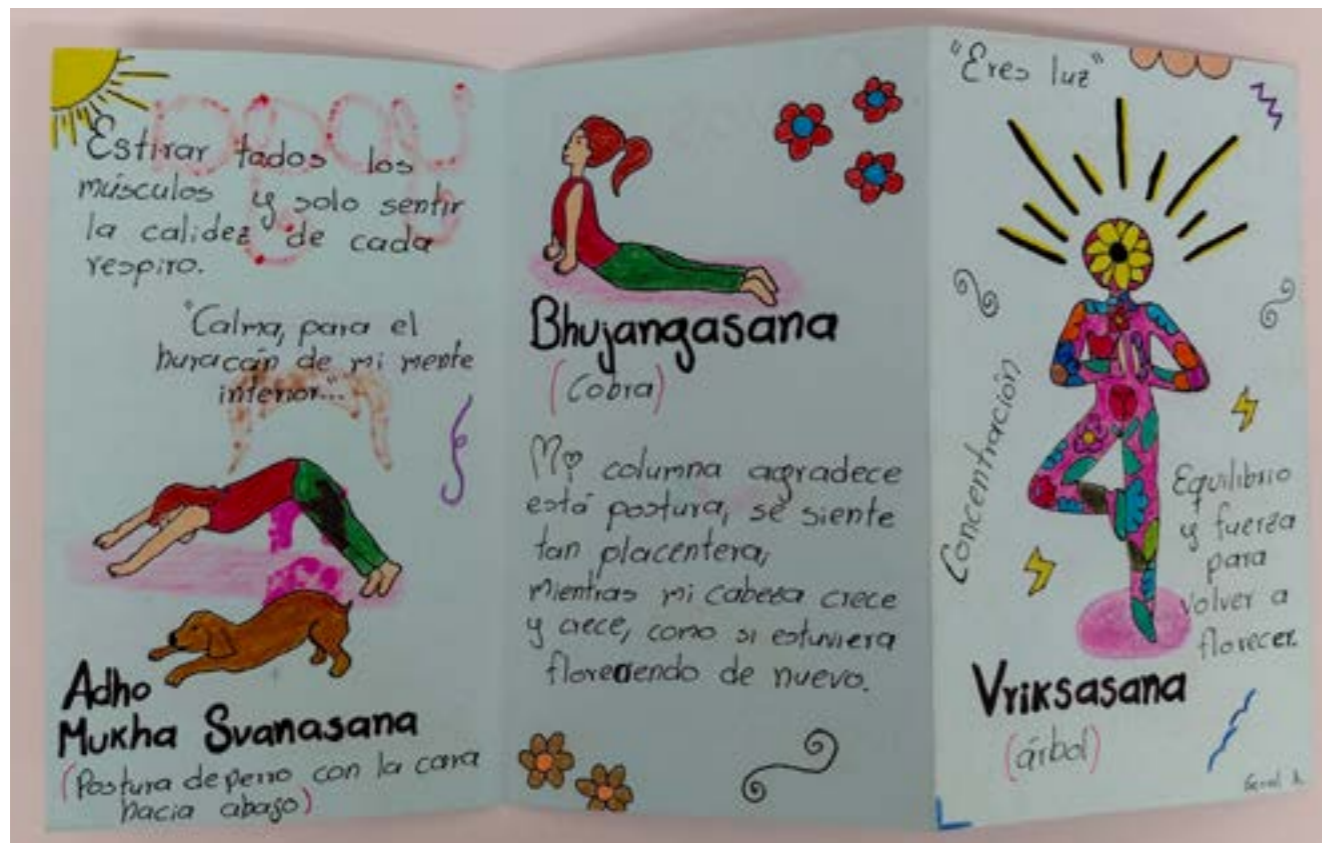 Estirar todos los
músculos y solo sentir
la calidez de cada
respiro.
"Calma, para el
huracán de mi mente
interior..."
Adho
Mukha Svanasana
(Postura de perro con la cara
hacia abajo)
Bhujangasana
(Cobra)
Mi columna agradece
está postura, se siente
tan placentera,
mientras mi cabeza crece
y crece, como si estuviera
floreciendo de nuevo.
"Eres luz"
Concentración
Equilibrio
y fuerza
para
volver a
florecer.
Vriksasana
(árbol)